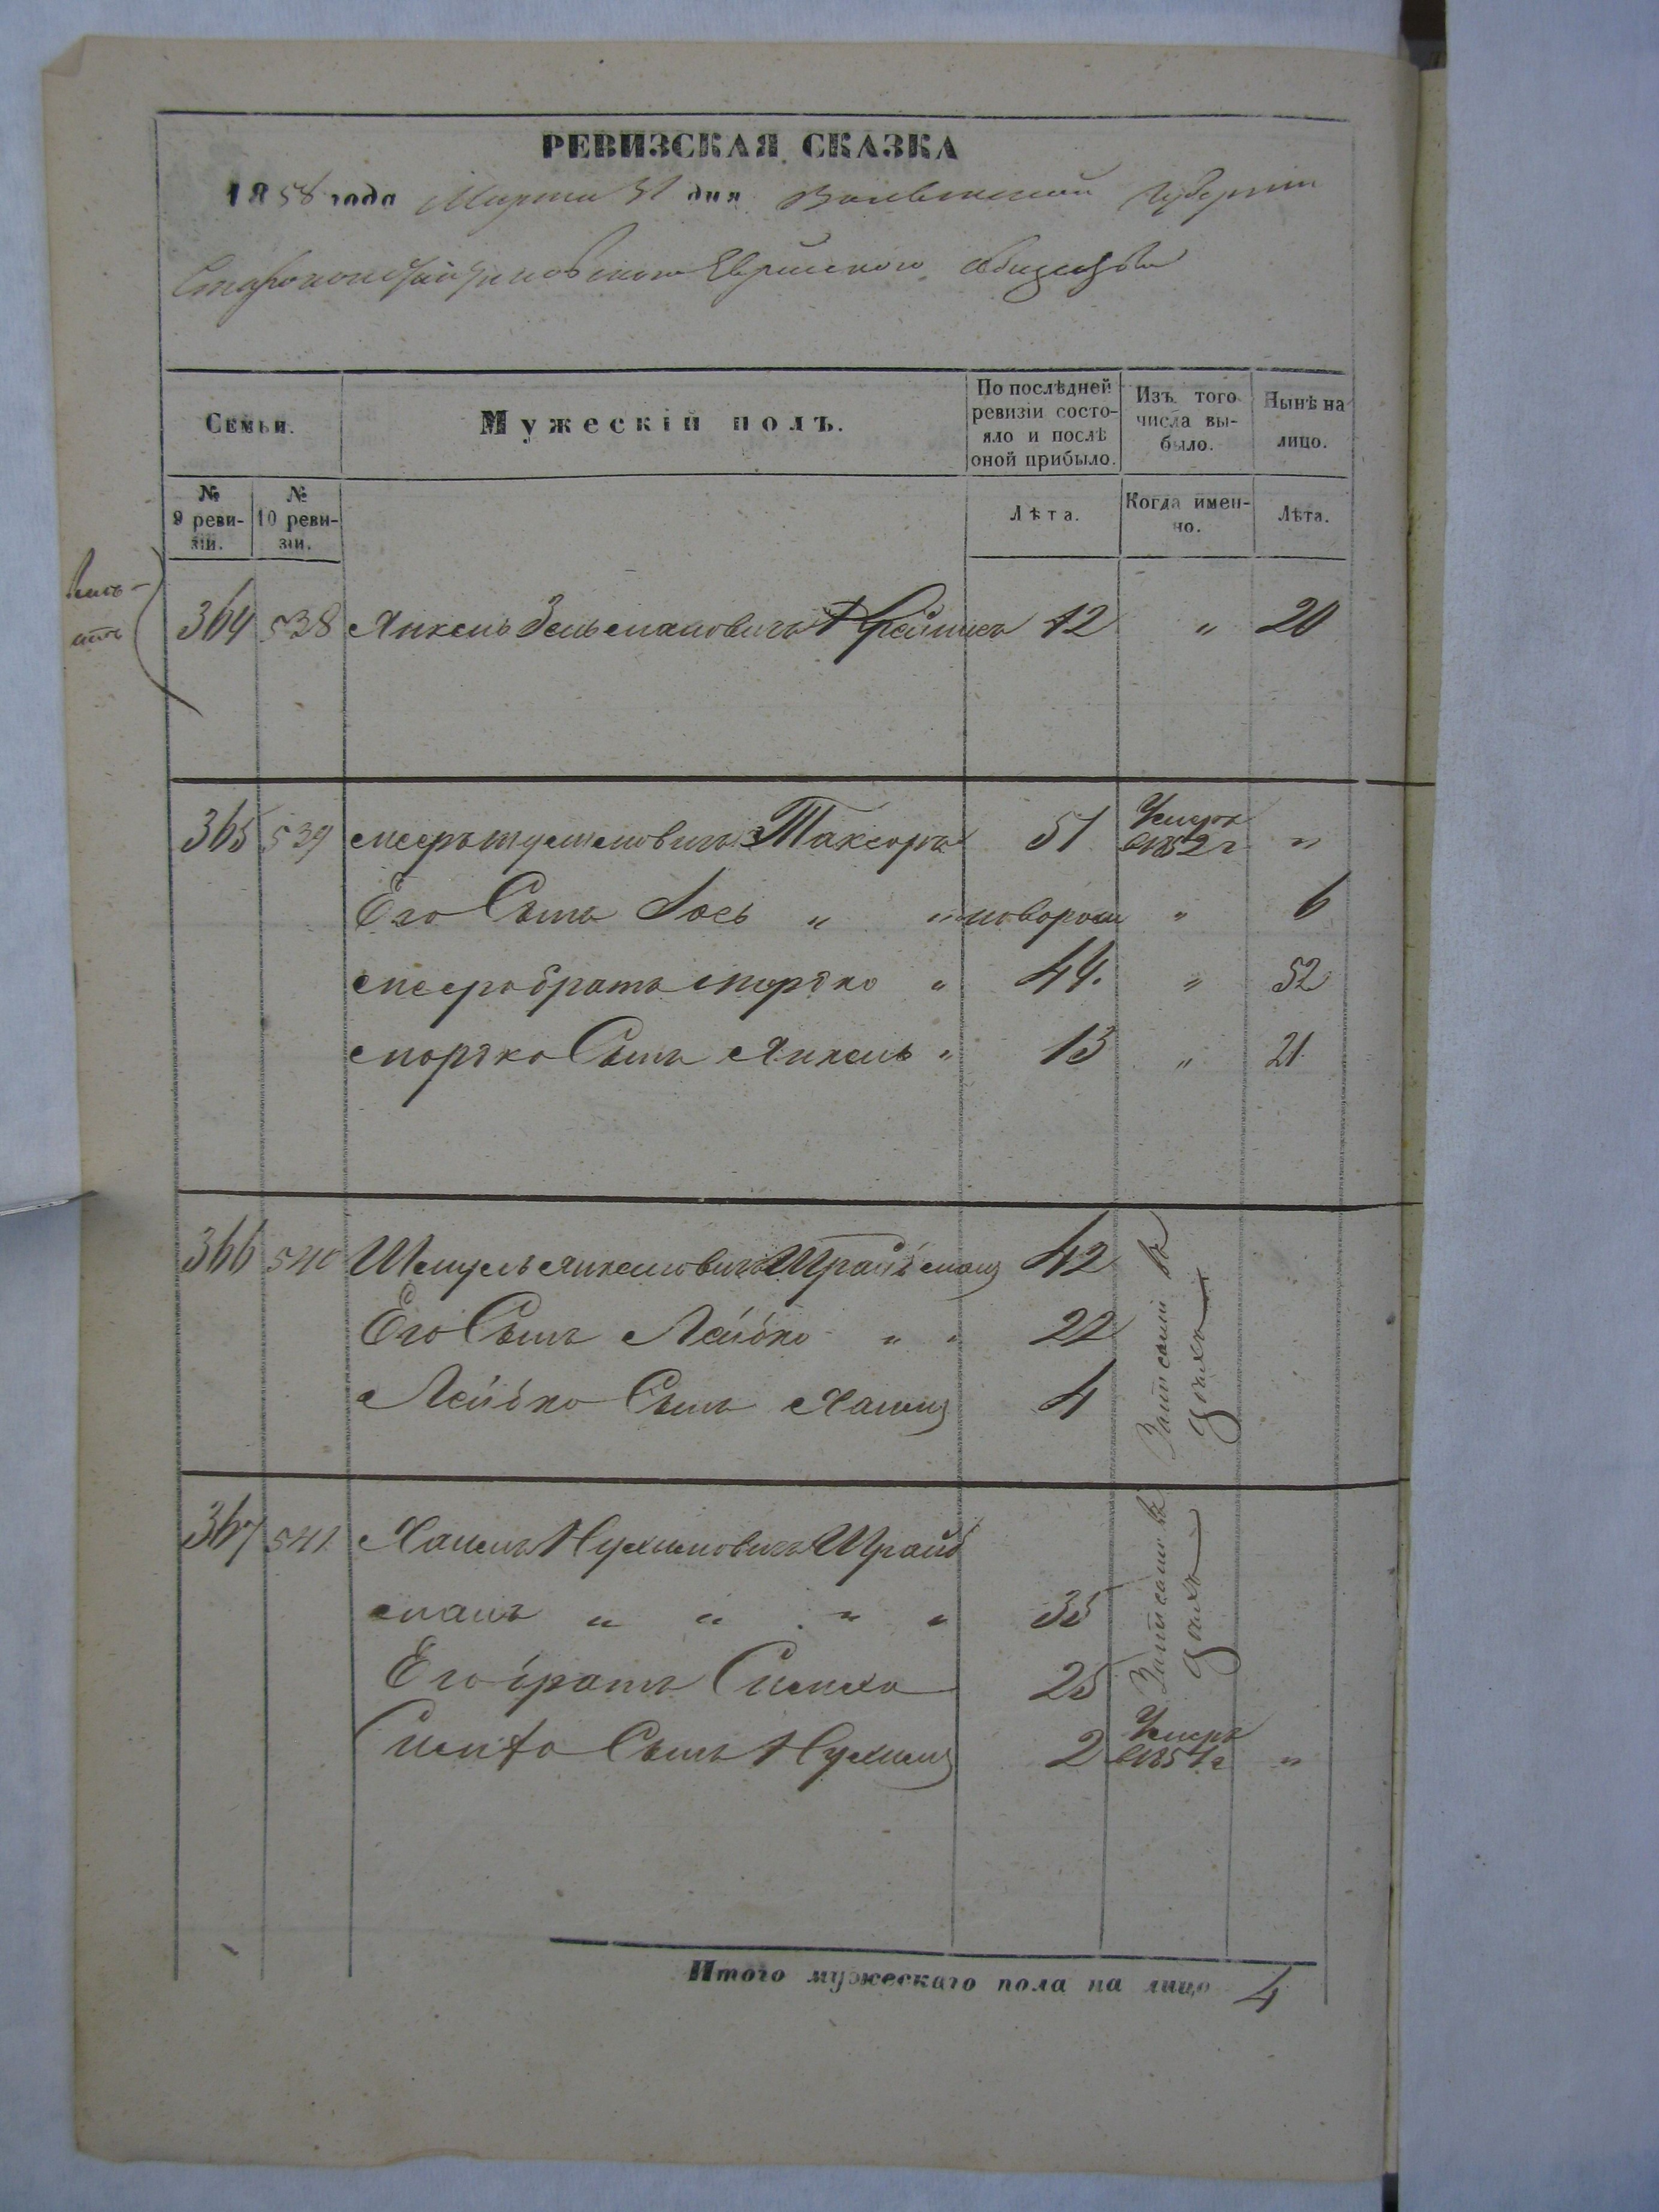 РЕВИЗСКАЯ СКАЗКА
1858 года Марта 31 дня Волынской Губернии
Староконстантиновского Еврейского общества
Семьи.
Мужескій полъ.
По послѣдней ревизіи состо-
яло и послѣ
оной прибыло.
Изъ того
числа вы-
было.
Нынѣ на
лицо.
№ 9 реви-
зіи.
№ 10 реви-
зіи.
Лѣта.
Когда имен-
но.
Лѣта.
364 538 Янкель Зельмановичъ 12 " 20
365 539 Таксаръ 51 Умеръ в 1852 г "
Его Сынъ Іось " " новорож " 6
братъ Мордко " 44. " 52
Мордко Сынъ Янкель " 13 " 21
366 540 Шмуль Янкелевичъ Шрайбманъ 42 Записаны въ
Его Сынъ Лейбко " " 22
Лейбко Сынъ Хаимъ 4
367 541 Хаимъ Нухимовичъ Шрайб
манъ " " " " 35 Записаны въ
Его братъ Симха 25
Симха Сынъ Нухимъ 2 Умеръ в 1851 г "
Итого мужескаго пола на лицо 4